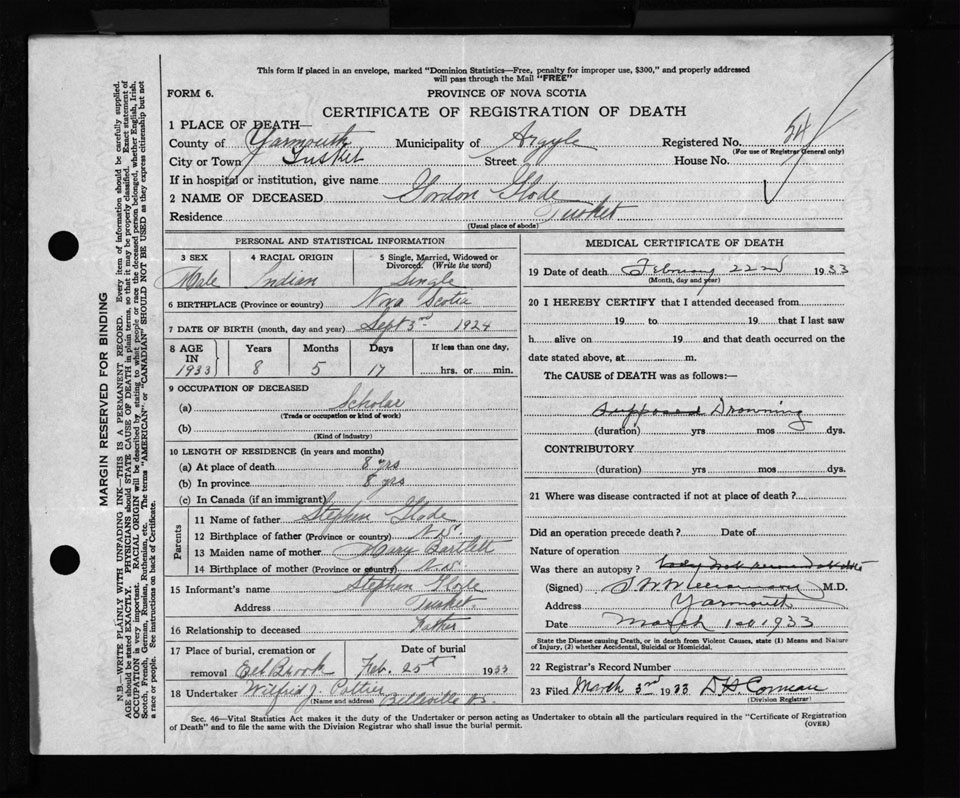 This form if placed in an envelope, marked "Dominion Statistics—Free, penalty for improper use, $300," and properly addressed
will pass through the Mail "FREE"
FORM 6.
PROVINCE OF NOVA SCOTIA
CERTIFICATE OF REGISTRATION OF DEATH
1 PLACE OF DEATH—
County of Yarmouth Municipality of Argyle Registered No. 54
(For use of Registrar General only)
City or Town Tusket Street House No.
If in hospital or institution, give name
2 NAME OF DECEASED Gordon Glode
Residence Tusket
(Usual place of abode)
PERSONAL AND STATISTICAL INFORMATION
3 SEX 4 RACIAL ORIGIN 5 Single, Married, Widowed or
Divorced. (Write the word)
Male Indian Single
6 BIRTHPLACE (Province or country) Nova Scotia
7 DATE OF BIRTH (month, day and year) Sept 3rd 1924
8 AGE Years Months Days If less than one day,
IN
1933 8 5 17 hrs. or min.
9 OCCUPATION OF DECEASED
(a) Scholar
(Trade or occupation or kind of work)
(b)
(Kind of industry)
10 LENGTH OF RESIDENCE (in years and months)
(a) At place of death 8 yrs
(b) In province 8 yrs
(c) In Canada (if an immigrant)
Parents
11 Name of father Stephen Glode
12 Birthplace of father (Province or country) N.S.
13 Maiden name of mother Mary Bartlett
14 Birthplace of mother (Province or country) N.S.
15 Informant's name Stephen Glode
Address Tusket.
16 Relationship to deceased Father
17 Place of burial, cremation or Date of burial
removal Eel Brook Feb. 25t 1933
18 Undertaker Wilfrid J. Pottier Belleville N.S.
(Name and address)
MEDICAL CERTIFICATE OF DEATH
19 Date of death February 22nd 1933
(Month, day and year)
20 I HEREBY CERTIFY that I attended deceased from
19 to 19 that I last saw
h alive on 19 and that death occurred on the
date stated above, at m.
The CAUSE of DEATH was as follows:—
supposed Drowning
(duration) yrs mos dys.
CONTRIBUTORY
(duration) yrs mos dys.
21 Where was disease contracted if not at place of death?
Did an operation precede death? Date of
Nature of operation
Was there an autopsy? body not
(Signed) M.D.
Address Yarmouth
Date March 1st 1933
State the Disease causing Death, or in death from Violent Causes, state (1) Means and Nature
of Injury, (2) whether Accidental, Suicidal or Homicidal.
22 Registrar's Record Number
23 Filed March 3rd 1933 Corneau
(Division Registrar)
Sec. 46—Vital Statistics Act makes it the duty of the Undertaker or person acting as Undertaker to obtain all the particulars required in the "Certificate of Registration
of Death" and to file the same with the Division Registrar who shall issue the burial permit. (OVER)
MARGIN RESERVED FOR BINDING
N.B.—WRITE PLAINLY WITH UNFADING INK—THIS IS A PERMANENT RECORD. Every item of information should be carefully supplied.
AGE should be stated EXACTLY. PHYSICIANS should STATE CAUSE OF DEATH in plain terms, so that it may be properly classified. Exact statement of
OCCUPATION is very important. RACIAL ORIGIN will be described by stating to what people or race the deceased person belonged, whether English, Irish,
Scotch, French, German, Russian, Ruthenian, etc. The terms "AMERICAN" or "CANADIAN" SHOULD NOT BE USED as they express citizenship but not
a race or people. See instructions on back of Certificate.